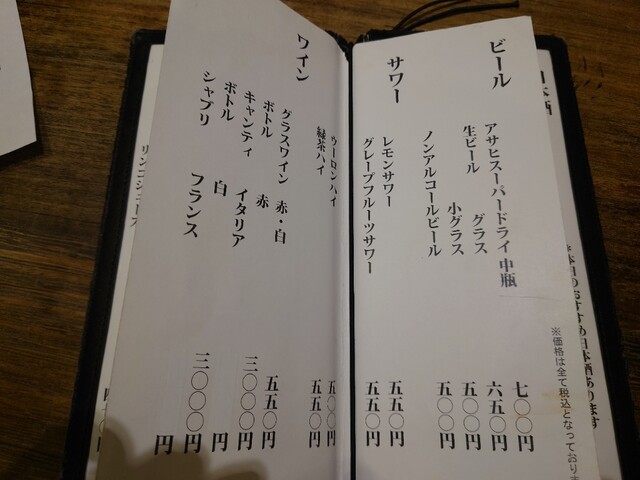 日本酒
本日のおすすめ日本酒あります
※価格は全て税込となっており
ビール
アサヒスーパードライ 中瓶 七〇〇円
生ビール グラス 六五〇円
小グラス 五〇〇円
ノンアルコールビール 五〇〇円
サワー
レモンサワー 五五〇円
グレープフルーツサワー 五五〇円
ウーロンハイ 円
緑茶ハイ 五五〇円
ワイン
グラスワイン 赤・白 五五〇円
ボトル 赤
キャンティ イタリア 三〇〇〇円
ボトル 白 円
シャブリ フランス 三〇〇〇円
円
リンゴジュース